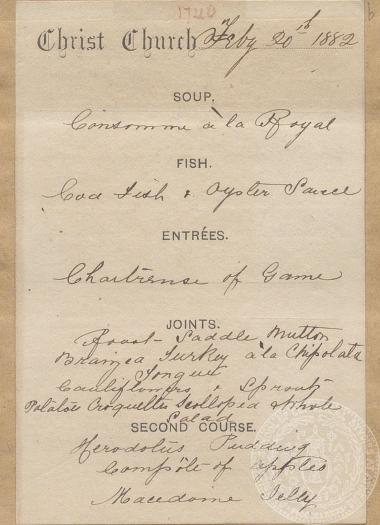 1720
b
Christ Church Feby 20th 1882
SOUP.
Consomme à la Royal
FISH.
Cod Fish & Oyster Sauce
ENTRÉES.
Chartrense of Game
JOINTS.
Roast Saddle Mutton
Braized Turkey à la Chipolata
Tongue
Cauliflowers & Sprouts
Potatoe Croquettes Scolloped & Whole
Salad
SECOND COURSE.
Herodotus Pudding
Compôte of apples
Macedoine Jelly